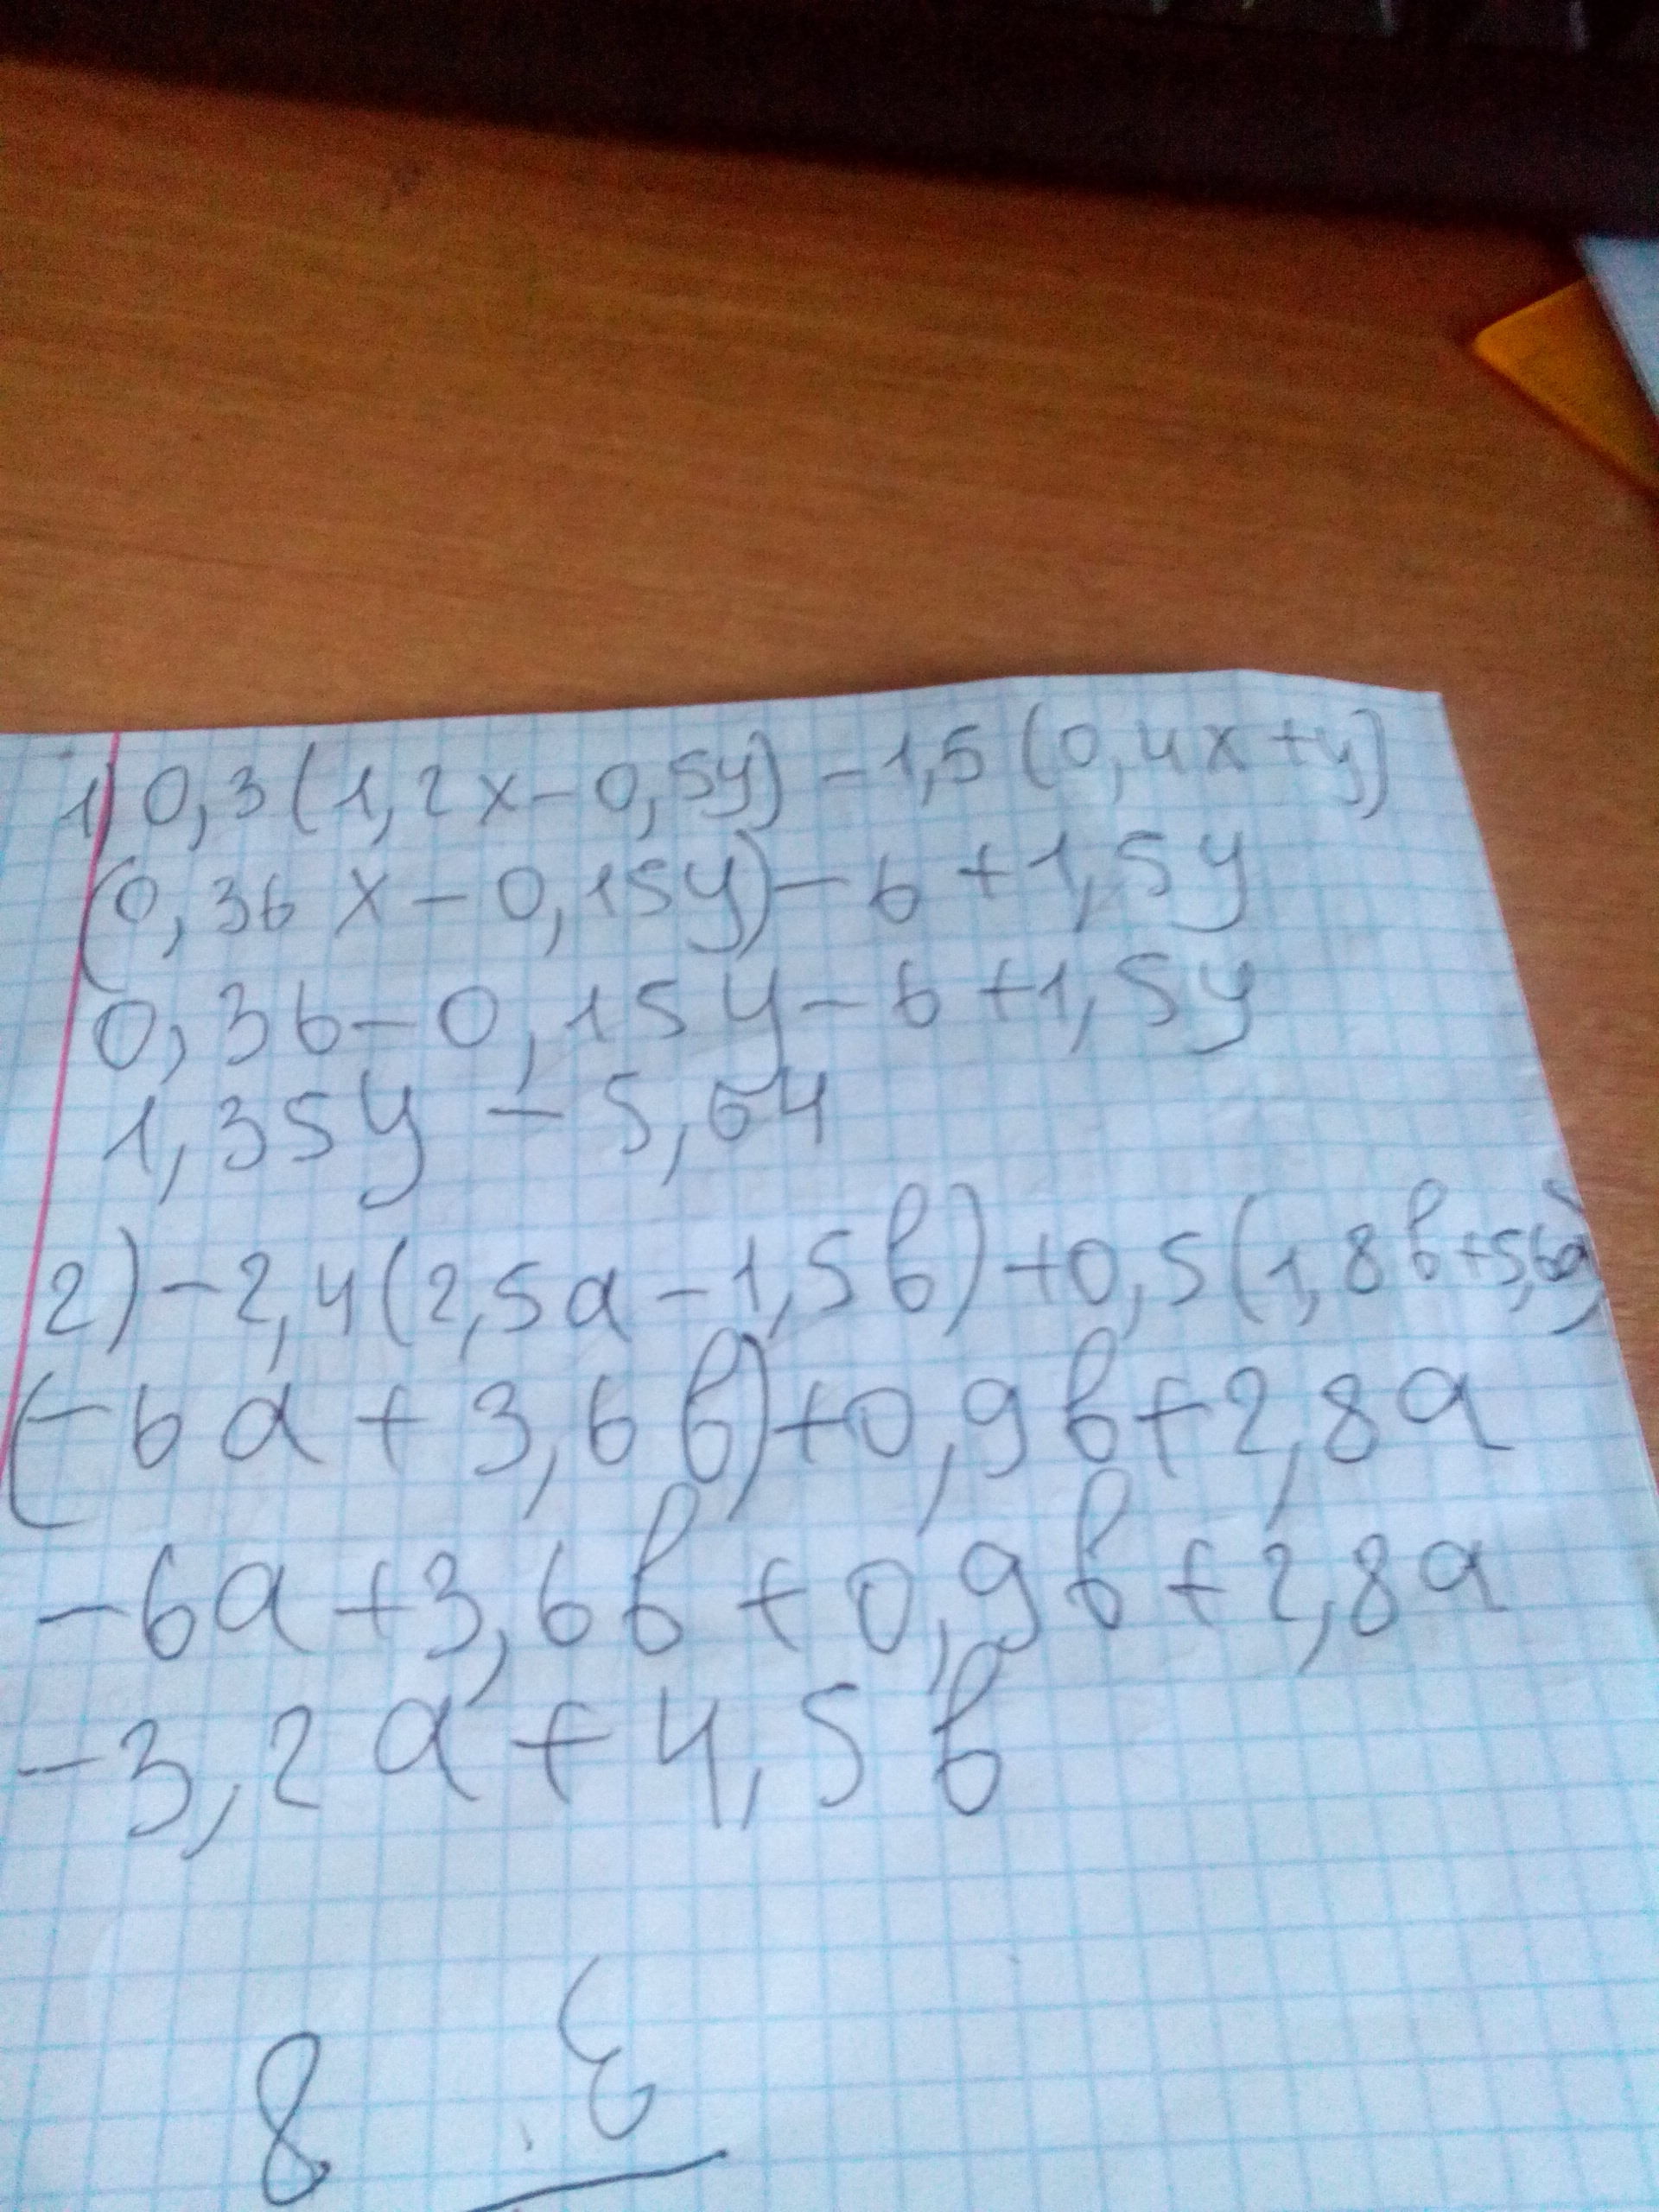 1) 0,3(1,2x-0,5y)-1,5(0,4x+y)
(0,36x-0,15y)-6+1,5y
0,36-0,15y-6+1,5y
1,35y-5,64
2)-2,4(2,5a-1,5в)+0,5(1,8в+5,6a)
(-6a+3,6в)+0,9в+2,8a
-6a+3,6в+0,9в+2,8a
-3,2a+4,5в
8